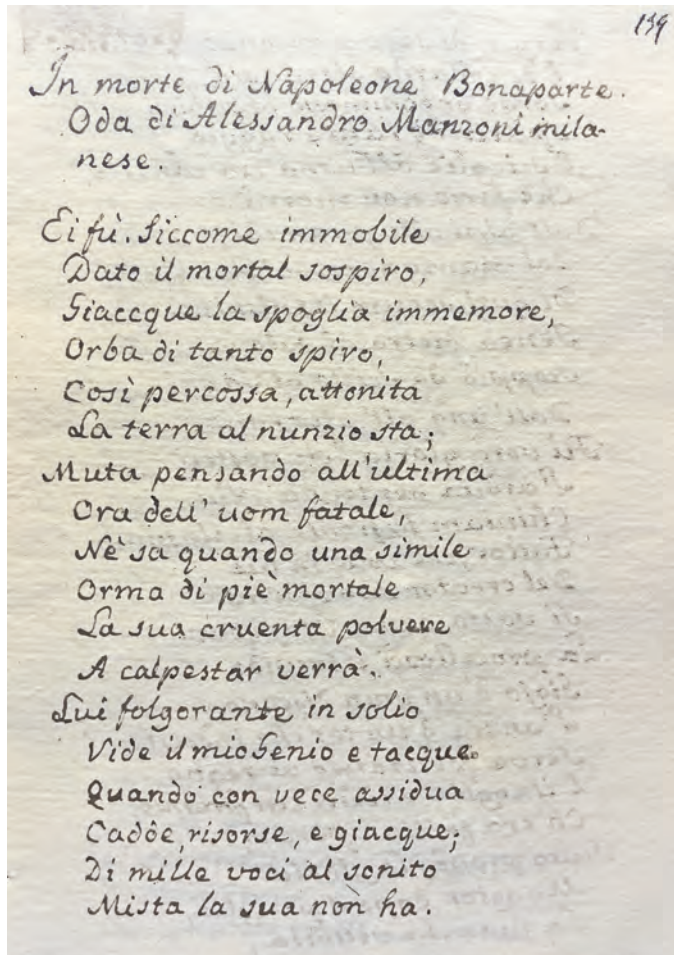 139
In morte di Napoleone Bonaparte.
Oda di Alessandro Manzoni mila-
nese.
Ei fù. Siccome immobile
Dato il mortal sospiro,
Giaccque la spoglia immemore,
Orba di tanto spiro,
Così percossa, attonita
La terra al nunzio sta;
Muta pensando all'ultima
Ora dell' uom fatale,
Nè sa quando una simile
Orma di piè mortale
La sua cruenta polvere
A calpestar verrà.
Lui folgorante in solio
Vide il mio Genio e tacque.
Quando con vece assidua
Caddè, risorse, e giacque;
Di mille voci al sonito
Mista la sua non ha.